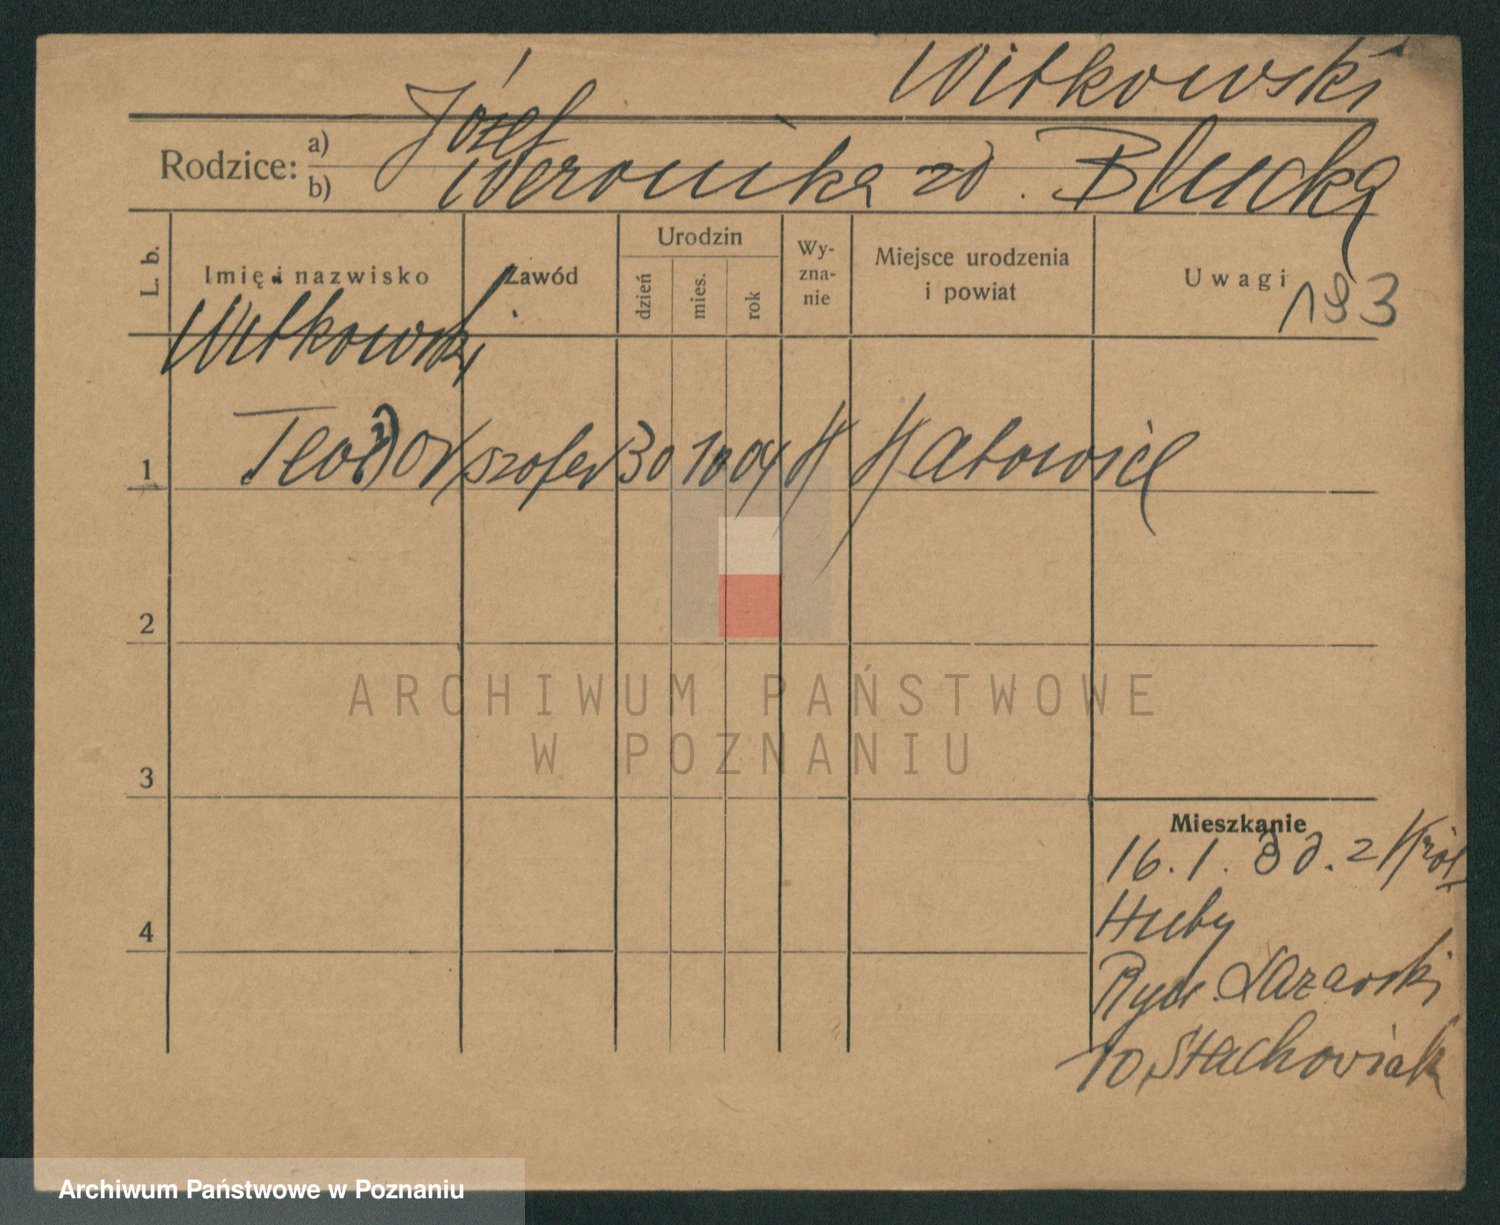 Witkowski
Rodzice: a) Józef
b) Weronika zd. Blucka
L. b.
Imię i nazwisko
Zawód
Urodzin
dzień
mies.
rok
Wy-
zna-
nie
Miejsce urodzenia
i powiat
Uwagi
193
Witkowski
1 Teodor szofer 30 10 04 K Katowice
2
3
4
ARCHIWUM PAŃSTWOWE
W POZNANIU
Mieszkanie
16.1.30. z Król.
Huby
Ryn. Łazarski
10 Stachowiak
Archiwum Państwowe w Poznaniu